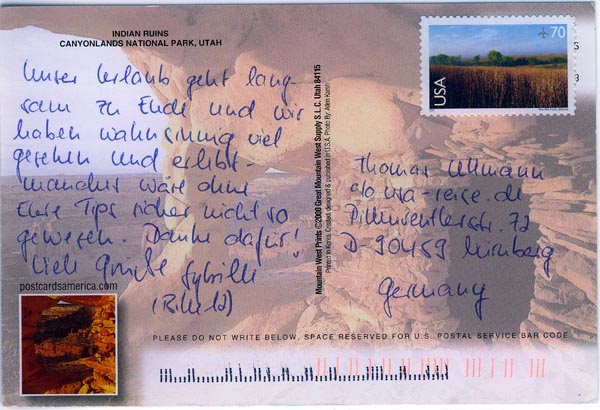 INDIAN RUINS
CANYONLANDS NATIONAL PARK, UTAH
Unser Urlaub geht lang-
sam zu Ende und wir
haben wahnsinnig viel
gesehen und erlebt-
manches wäre ohne
Eure Tips sicher nicht so
gewesen. Danke dafür!
Viele Grüße Sybille
postcardsamerica.com
Mountain West Prints ©2000 Great Mountain West Supply S.L.C. Utah 84115
Printed in Korea. Created, designed & published in U.S.A. Photo By: Allen Karsh
USA
70
Thomas Ullmann
c/o usa-reise.de
72
D-90459 Nürnberg
Germany
PLEASE DO NOT WRITE BELOW, SPACE RESERVED FOR U.S. POSTAL SERVICE BAR CODE